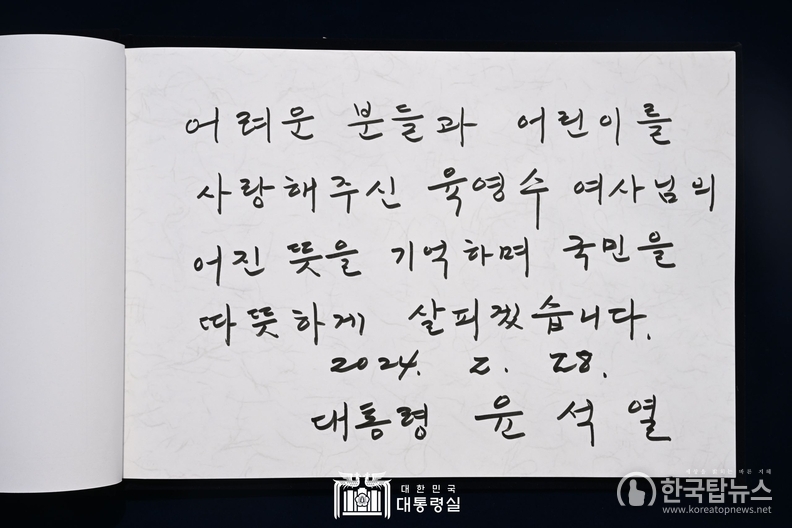 어려운 분들과 어린이를
사랑해주신 육영수 여사님의
어진 뜻을 기억하며 국민을
따뜻하게 살피겠습니다.
2024. 2. 28.
대통령 윤석열
대한민국
대통령실
한국탑뉴스
www.koreatopnews.net